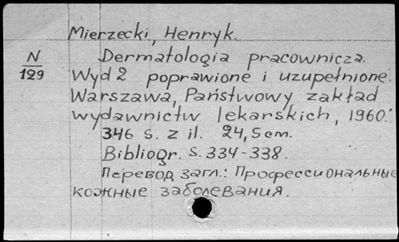 Mierzecki, Henryk.
N
129
Dermatologia pracownicza.
Wyd 2 poprawione i uzupełnione.
Warszawa, Państwowy zakład
wydawnictw lekarskich, 1960.
346 s. z il. 24,5 cm.
Bibliogr. s. 334-338.
Перевод загл.: Профессиональные
кожные заболевания.